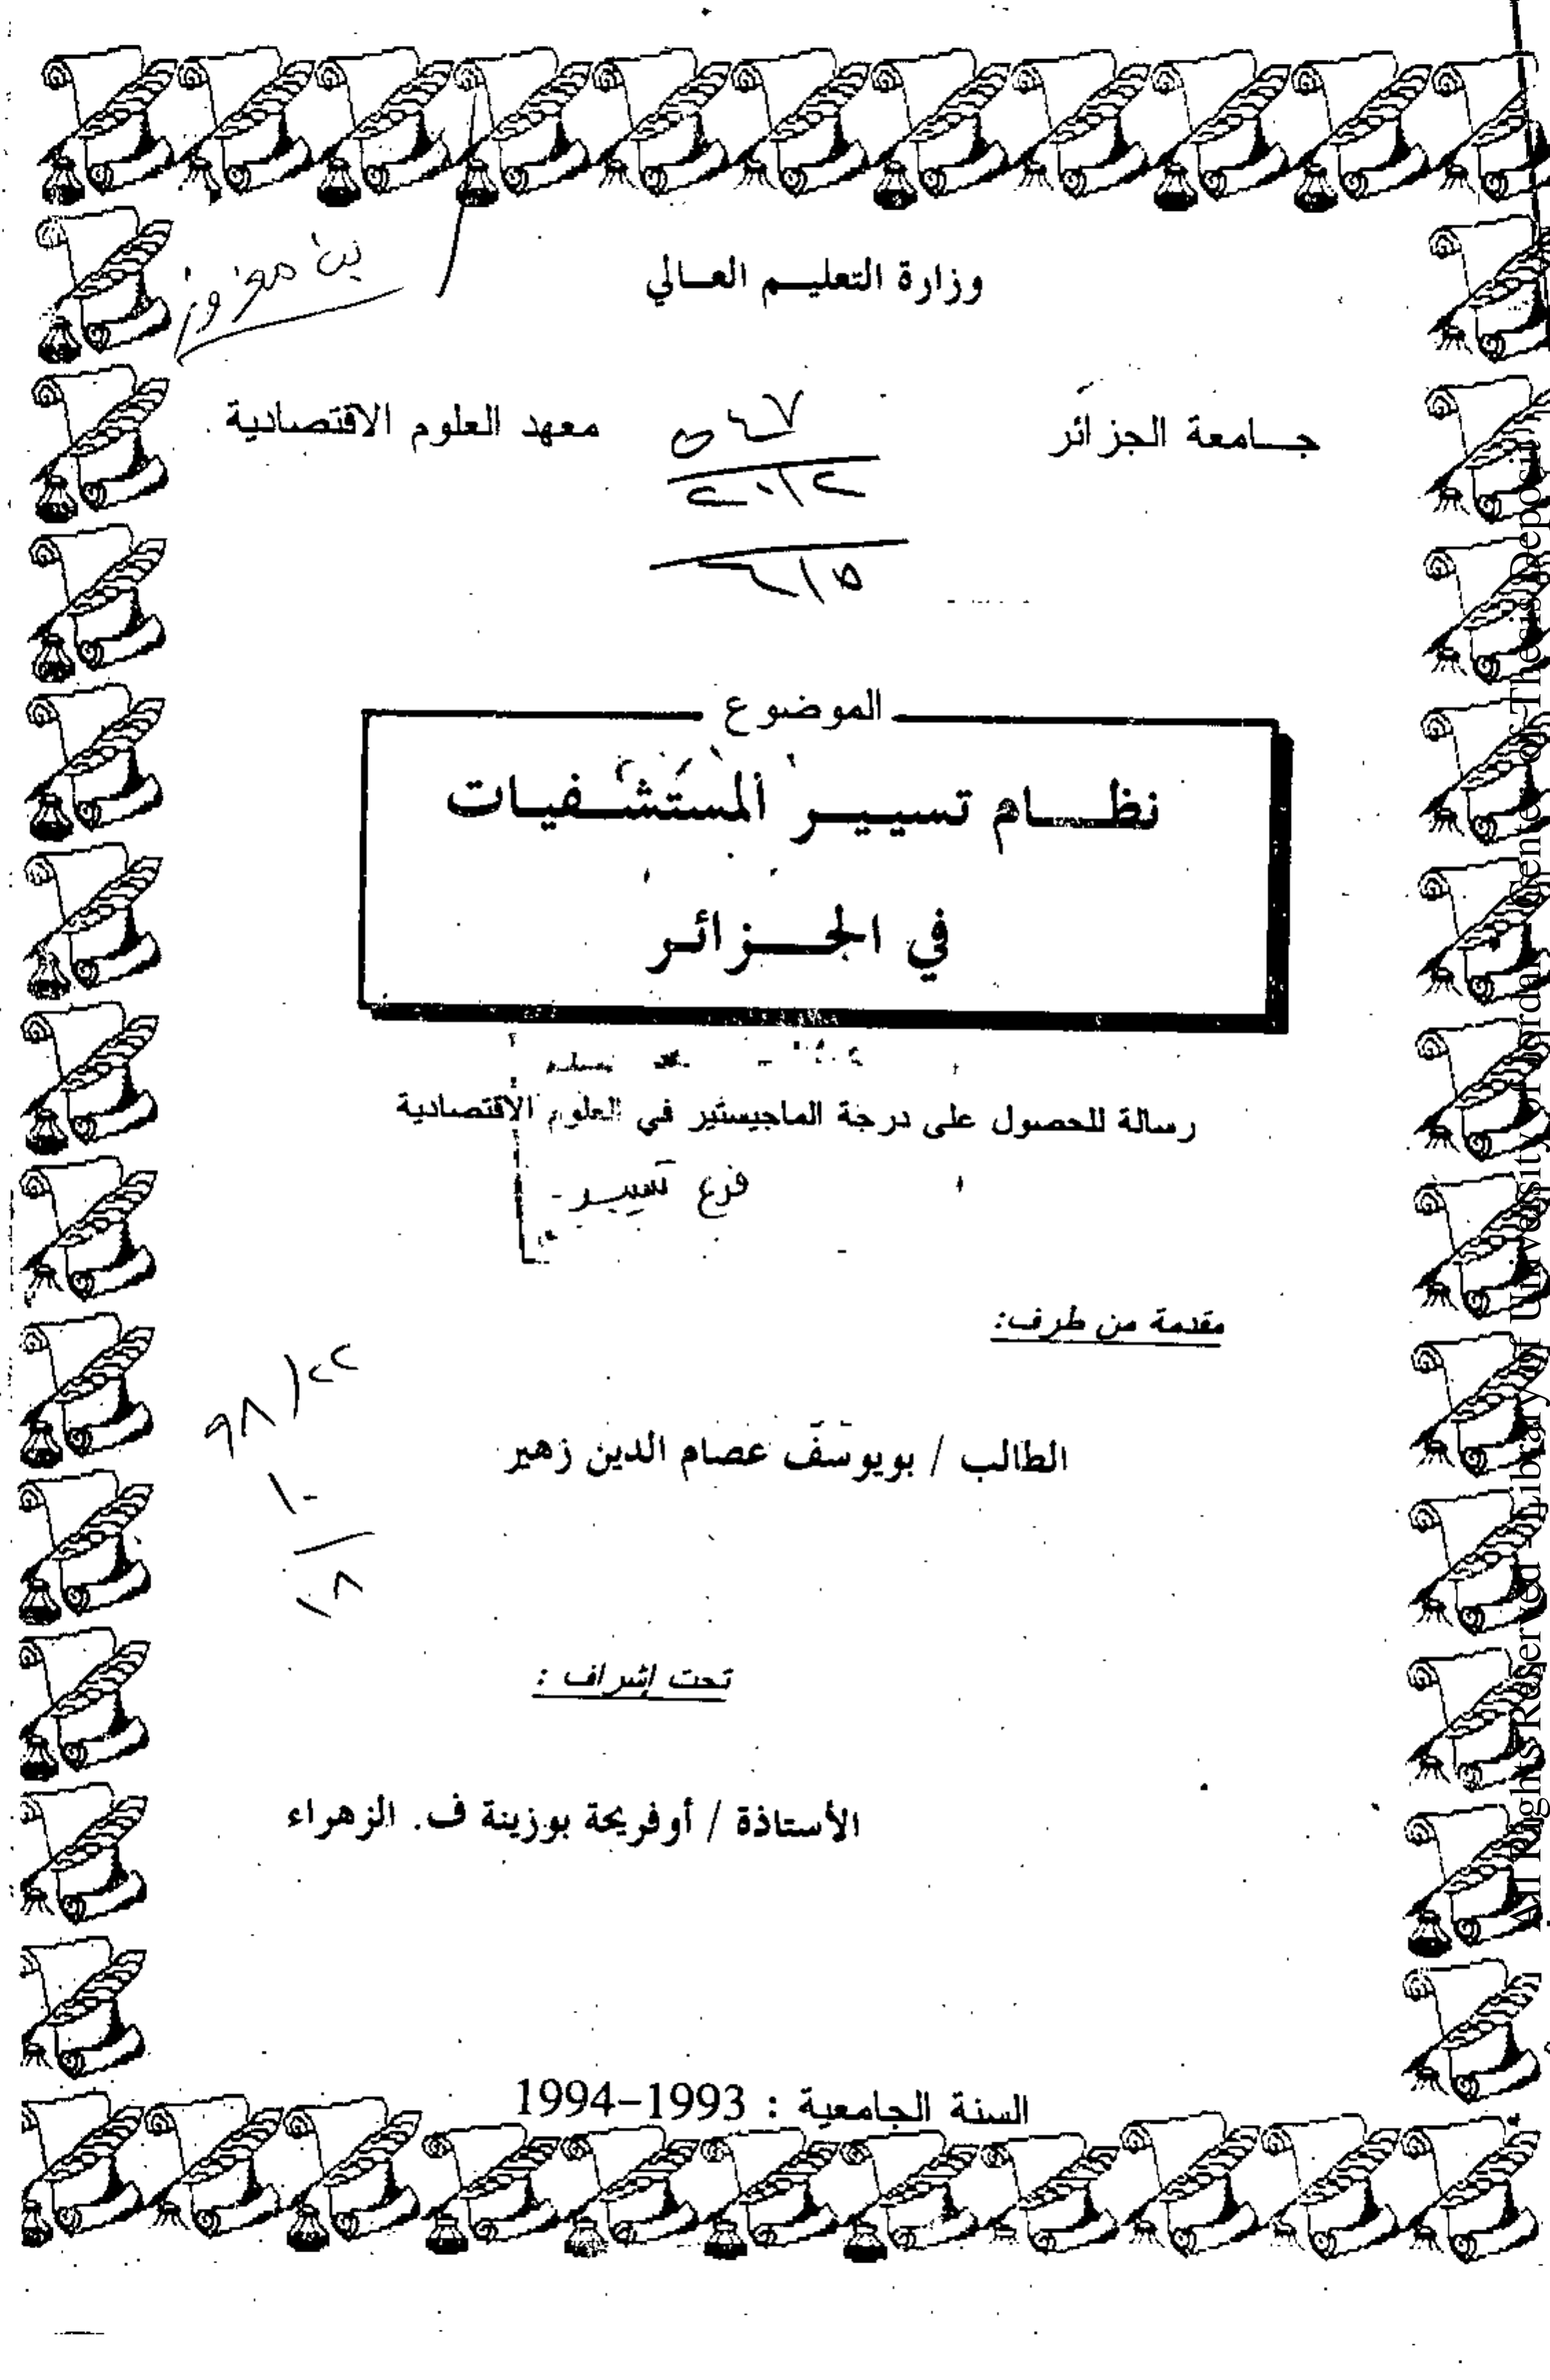 وزارة التعليم العالي
جامعة الجزائر
معهد العلوم الاقتصادية
الموضوع
نظام تسيير المستشفيات
في الجزائر
رسالة للحصول على درجة الماجيستير في العلوم الاقتصادية
فرع تسيير -
مقدمة من طرف:
الطالب / بويوسف عصام الدين زهير
تحت إشراف :
الأستاذة / أوفريحة بوزينة ف. الزهراء
السنة الجامعية : 1993-1994
All Rights Reserved - Library of University of Jordan - Center of Thesis Deposit